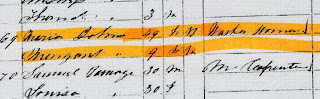 Thomas " 3 m
69 Maria 49 f W Washer Woman
Margaret " 9 f W
70 Samuel Ramage 30 m M Carpenter
Louisa " 30 f